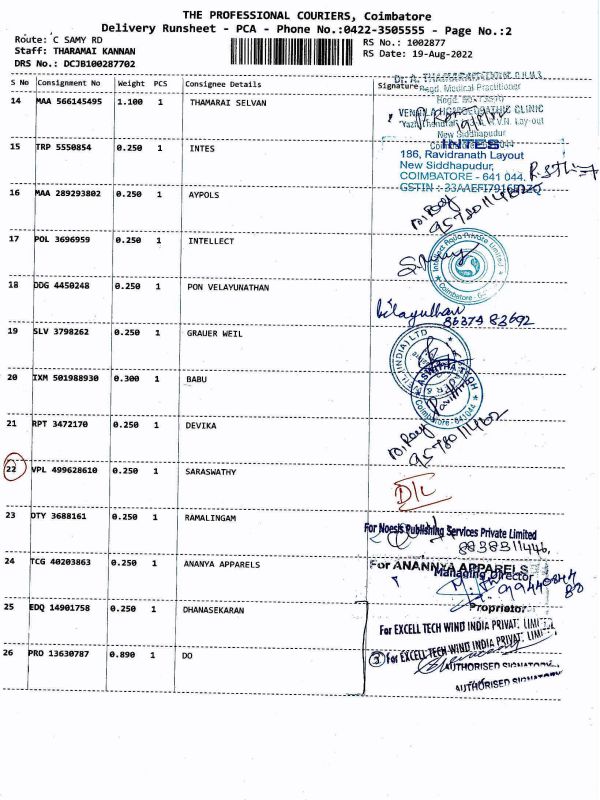 THE PROFESSIONAL COURIERS, Coimbatore
Delivery Runsheet - PCA - Phone No.:0422-3505555 - Page No.:2
Route: C SAMY RD
Staff: THARAMAI KANNAN
DRS No.: DCJB100287702
RS No.: 1002877
RS Date: 19-Aug-2022
S No Consignment No Weight PCS Consignee Details Signature
14 MAA 566145495 1.100 1 THAMARAI SELVAN
Regd. Medical Practitioner
New Siddhapudur
15 TRP 5550854 0.250 1 INTES
INTES
186, Ravidranath Layout
New Siddhapudur,
COIMBATORE - 641 044.
16 MAA 289293802 0.250 1 AYPOLS
17 POL 3696959 0.250 1 INTELLECT
18 DDG 4450248 0.250 1 PON VELAYUNATHAN
86374 83692
19 SLV 3798262 0.250 1 GRAUER WEIL
20 IXM 501988930 0.300 1 BABU
21 RPT 3472170 0.250 1 DEVIKA
22 VPL 499628610 0.250 1 SARASWATHY
D/L
23 DTY 3688161 0.250 1 RAMALINGAM
For Noesis Publishing Services Private Limited
8838311446,
24 TCG 40203863 0.250 1 ANANYA APPARELS
For ANANNYA APPARELS
Managing Director
Proprietor
25 EDQ 14901758 0.250 1 DHANASEKARAN
For EXCELL TECH WIND INDIA PRIVAT. LIMI
26 PRO 13630787 0.890 1 DO
For EXCELL TECH WIND INDIA PRIVAT. LIMI
AUTHORISED SIGNATORY
AUTHORISED SIGNATORY